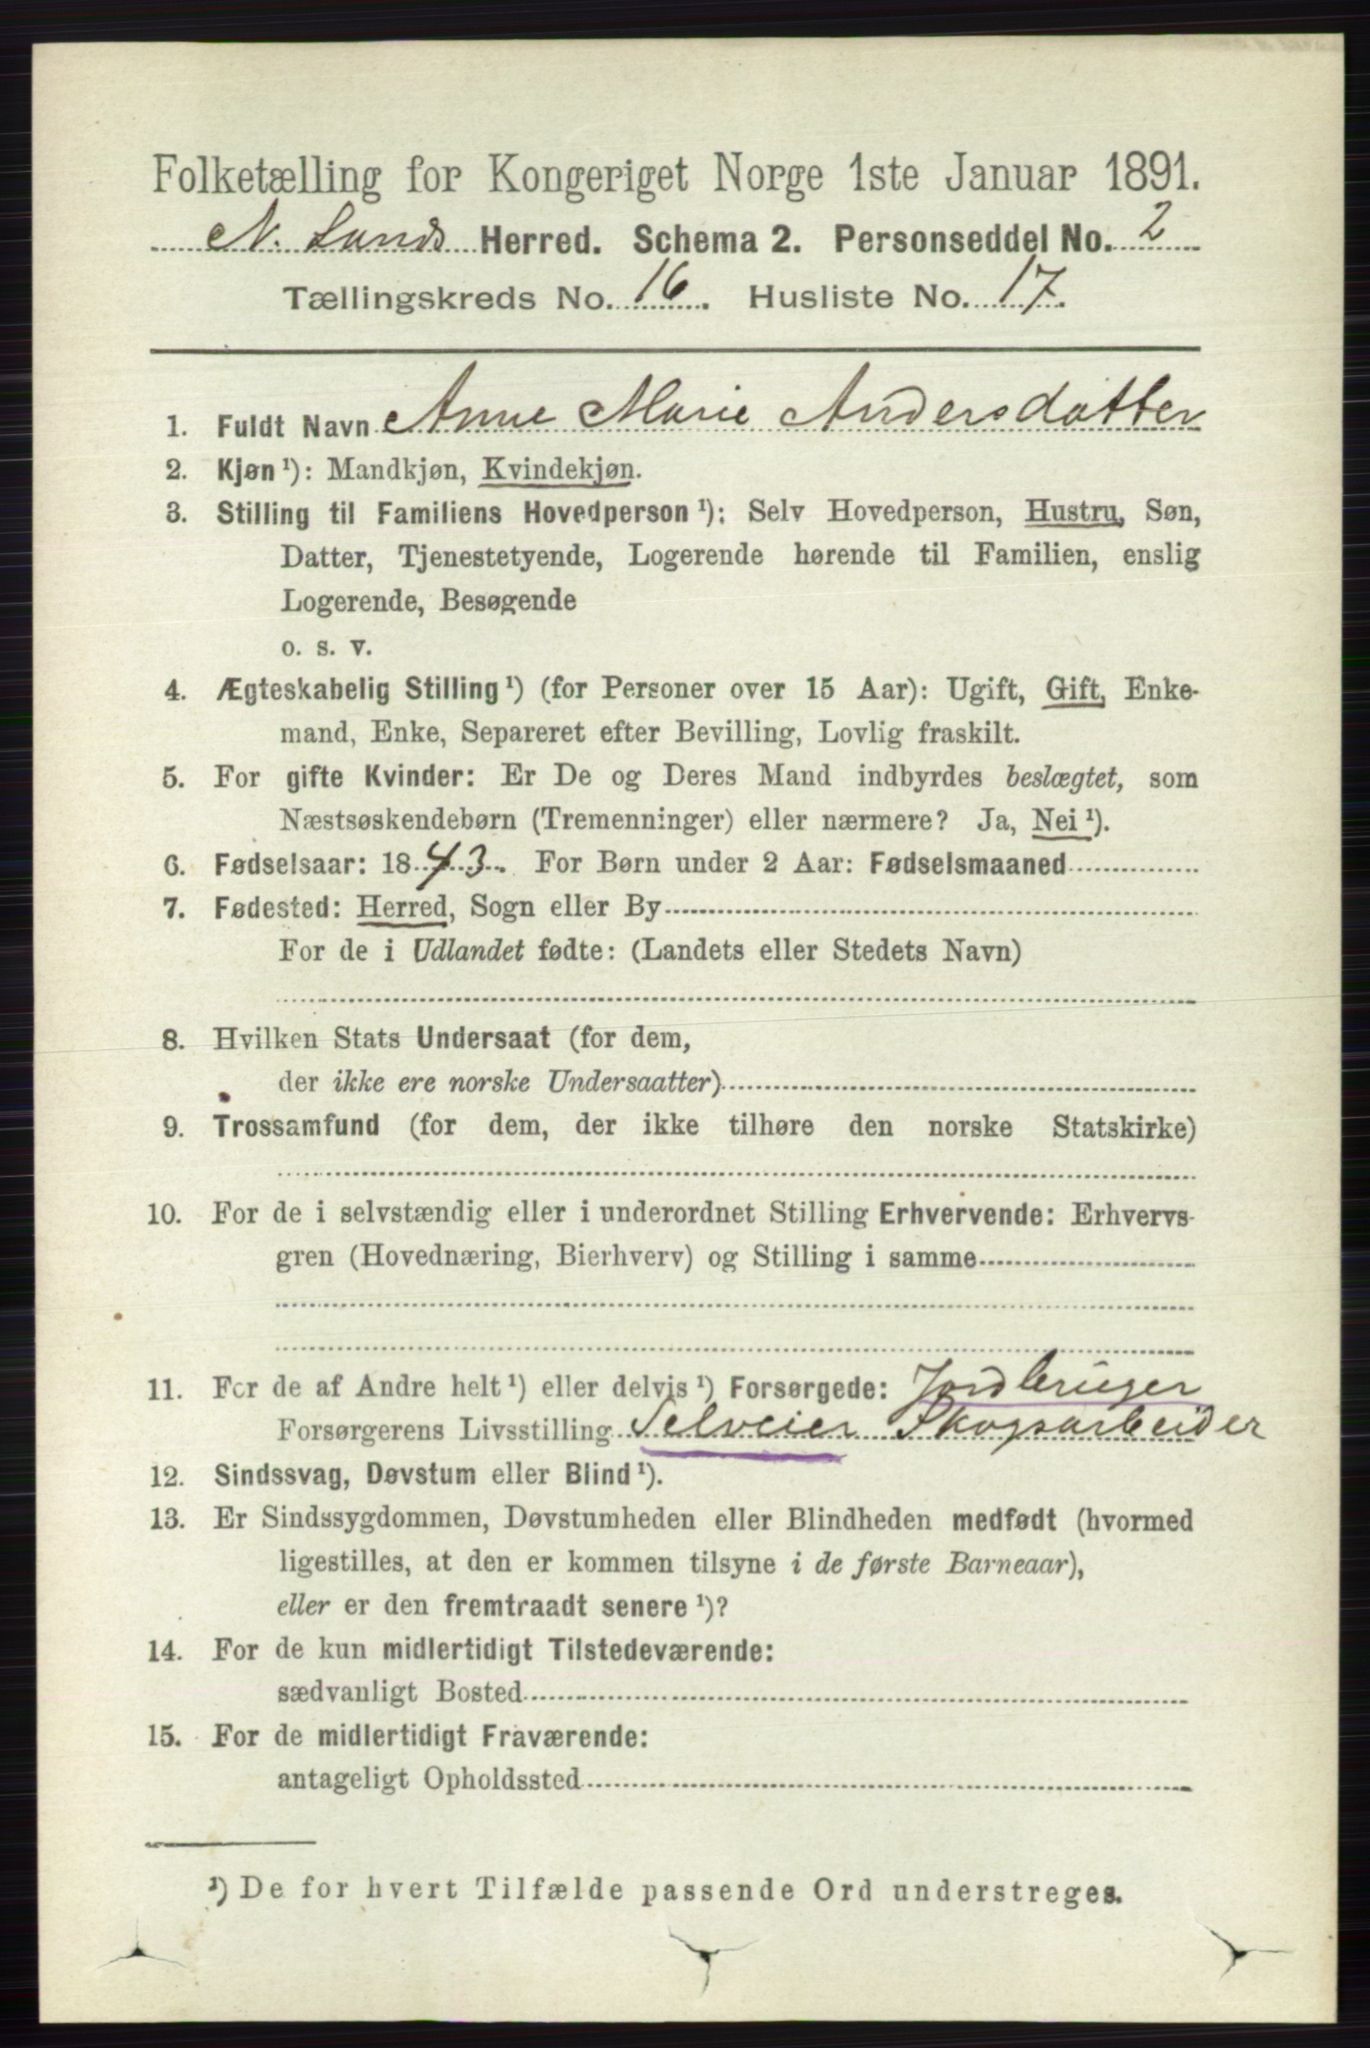 Folketælling for Kongeriget Norge 1ste Januar 1891.
N. Lands Herred. Schema 2. Personseddel No. 2
Tællingskreds No. 16. Husliste No. 17.
1. Fuldt Navn Anne Marie Andersdatter
2. Kjøn ¹): Mandkjøn, Kvindekjøn.
3. Stilling til Familiens Hovedperson ¹): Selv Hovedperson, Hustru, Søn,
Datter, Tjenestetyende, Logerende hørende til Familien, enslig
Logerende, Besøgende
o. s. v.
4. Ægteskabelig Stilling ¹) (for Personer over 15 Aar): Ugift, Gift, Enke-
mand, Enke, Separeret efter Bevilling, Lovlig fraskilt.
5. For gifte Kvinder: Er De og Deres Mand indbyrdes beslægtet, som
Næstsøskendebørn (Tremenninger) eller nærmere? Ja, Nei ¹).
6. Fødselsaar: 1843. For Børn under 2 Aar: Fødselsmaaned
7. Fødested: Herred, Sogn eller By
For de i Udlandet fødte: (Landets eller Stedets Navn)
8. Hvilken Stats Undersaat (for dem,
der ikke ere norske Undersaatter)
9. Trossamfund (for dem, der ikke tilhøre den norske Statskirke)
10. For de i selvstændig eller i underordnet Stilling Erhvervende: Erhvervs-
gren (Hovednæring, Bierhverv) og Stilling i samme
11. For de af Andre helt ¹) eller delvis ¹) Forsørgede: Jordbruger
Forsørgerens Livsstilling Selveier Skogsarbeider
12. Sindssvag, Døvstum eller Blind ¹).
13. Er Sindssygdommen, Døvstumheden eller Blindheden medfødt (hvormed
ligestilles, at den er kommen tilsyne i de første Barneaar),
eller er den fremtraadt senere ¹)?
14. For de kun midlertidigt Tilstedeværende:
sædvanligt Bosted
15. For de midlertidigt Fraværende:
antageligt Opholdssted
¹) De for hvert Tilfælde passende Ord understreges.